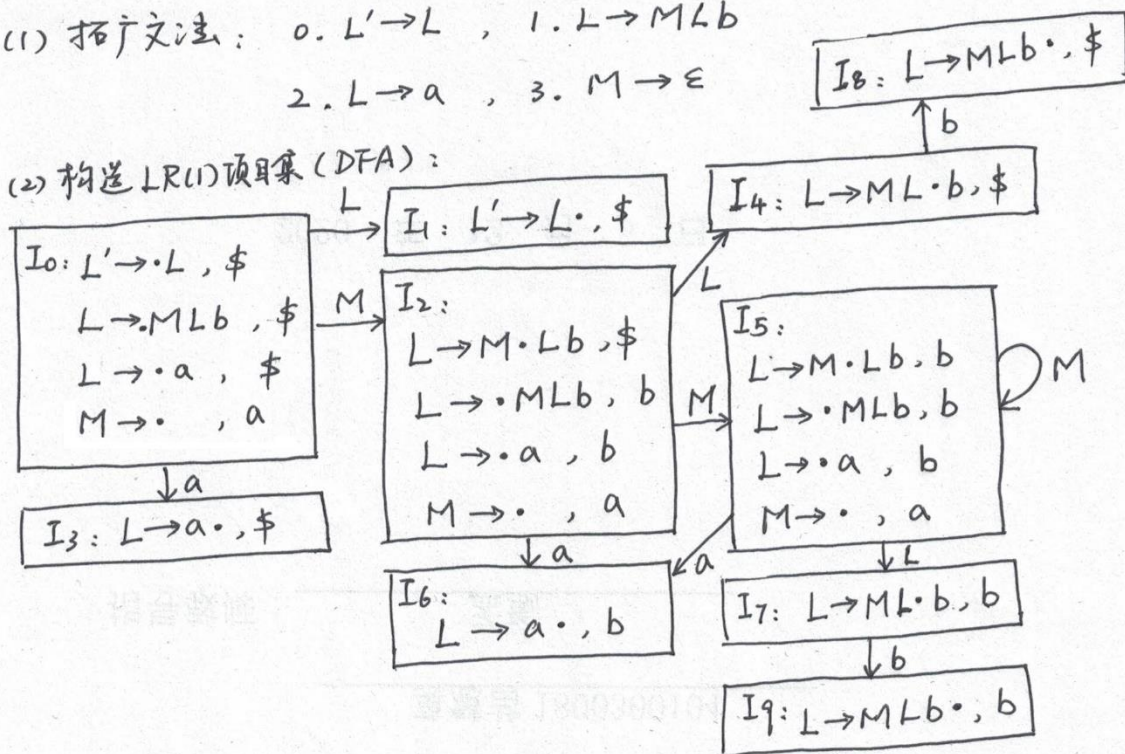 (1) 拓广文法: 0. L'→L , 1. L→MLb
2. L→a , 3. M→ε
(2) 构造LR(1)项目集(DFA):
I0: L'→·L , $
L→.MLb , $
L→·a , $
M→· , a
L
I1: L'→L· , $
M
a
I3: L→a· , $
I2:
L→M·Lb , $
L→·MLb , b
L→·a , b
M→· , a
L
I4: L→ML·b, $
b
I8: L→MLb· , $
M
a
I6:
L→a· , b
I5:
L→M·Lb, b
L→·MLb, b
L→·a , b
M→· , a
M
a
L
I7: L→ML·b, b
b
I9: L→MLb· , b